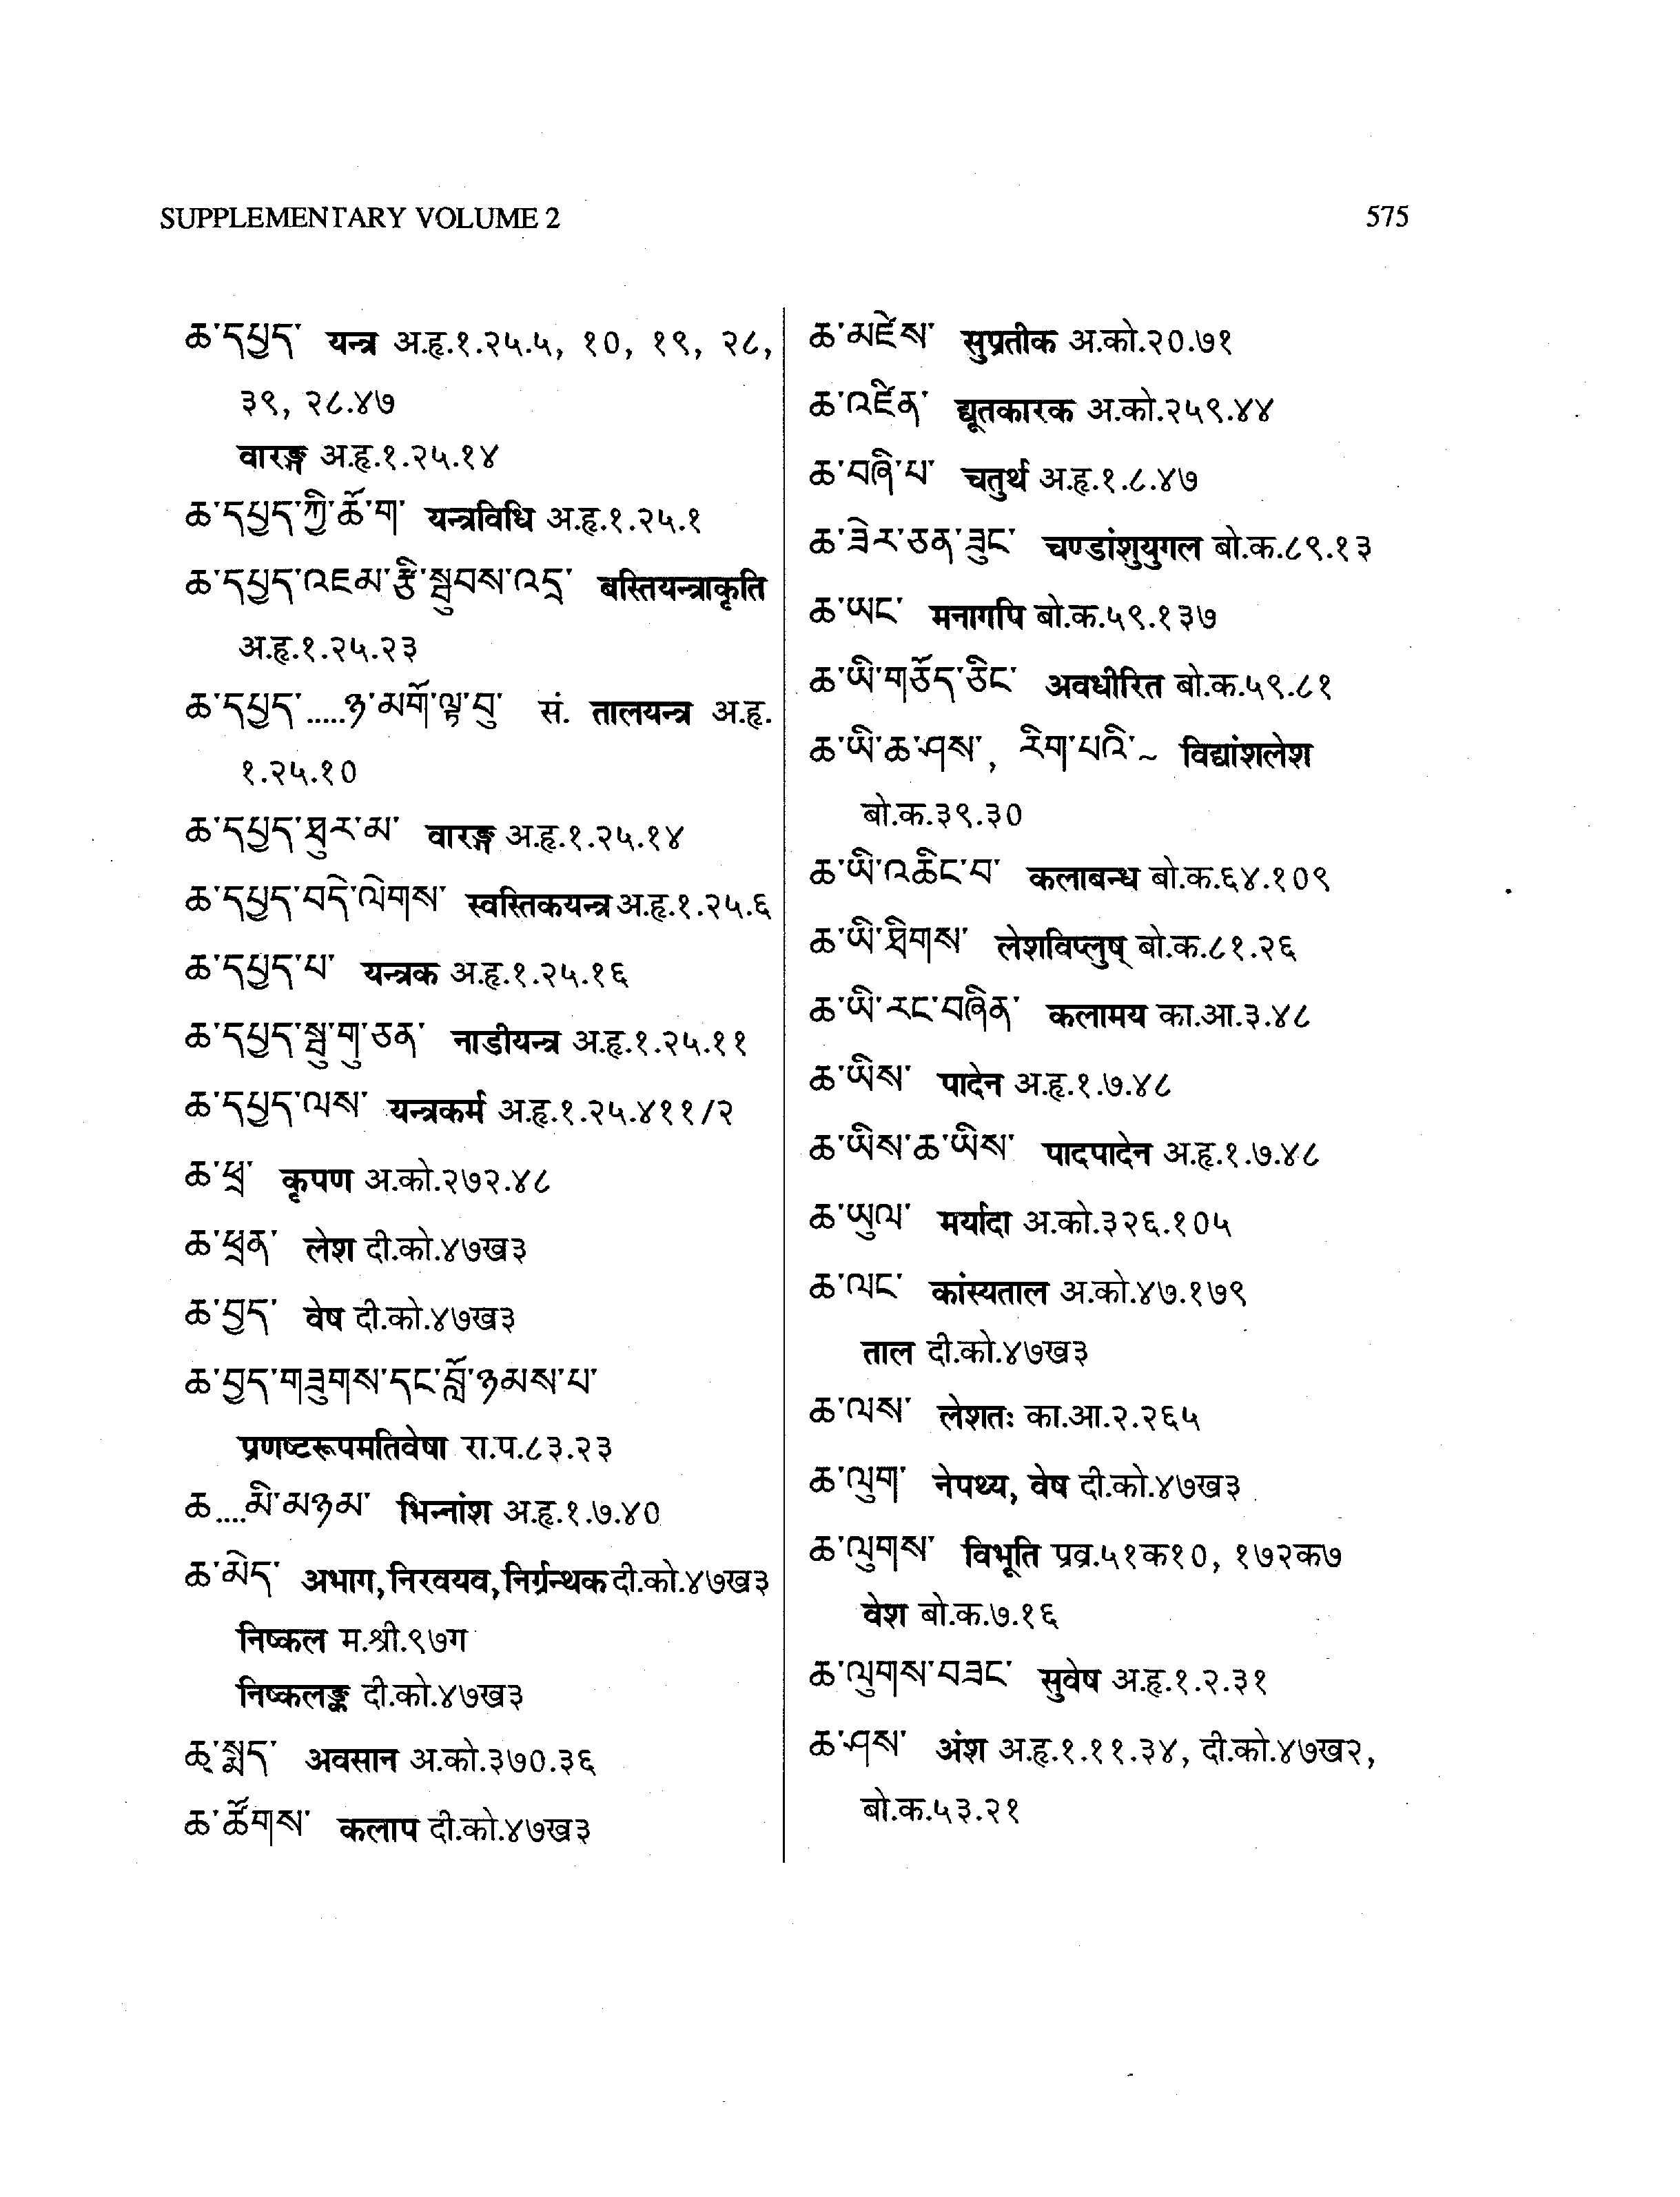 SUPPLEMENTARY VOLUME 2 575
ཆ་དཔྱད་ यन्त्र अ.हृ.१.२५.५, १०, १९, २८,
३९, २८.४७
वारङ्ग अ.हृ.१.२५.१४
ཆ་དཔྱད་ཀྱི་ཆོ་ག་ यन्त्रविधि अ.हृ.१.२५.१
ཆ་དཔྱད་འཇམ་རྩི་སྦུབས་འདྲ་ बस्तियन्त्राकृति
अ.हृ.१.२५.२३
ཆ་དཔྱད་.....ཉ་མགོ་ལྟ་བུ་ सं. तालयन्त्र अ.हृ.
१.२५.१०
ཆ་དཔྱད་ཐུར་མ་ वारङ्ग अ.हृ.१.२५.१४
ཆ་དཔྱད་བདེ་ལེགས་ स्वस्तिकयन्त्र अ.हृ.१.२५.६
ཆ་དཔྱད་པ་ यन्त्रक अ.हृ.१.२५.१६
ཆ་དཔྱད་སྦུ་གུ་ཅན་ नाडीयन्त्र अ.हृ.१.२५.११
ཆ་དཔྱད་ལས་ यन्त्रकर्म अ.हृ.१.२५.४११/२
ཆ་ཕྲ་ कृपण अ.को.२७२.४८
ཆ་ཕྲན་ लेश दी.को.४७ख३
ཆ་བྱད་ वेष दी.को.४७ख३
ཆ་བྱད་གཟུགས་དང་བློ་ཉམས་པ་
प्रणष्टरूपमतिवेषा रा.प.८३.२३
ཆ....མི་མཉམ་ भिन्नांश अ.हृ.१.७.४०
ཆ་མེད་ अभाग, निरवयव, निर्ग्रन्थक दी.को.४७ख३
निष्कल म.श्री.९७ग
निष्कलङ्क दी.को.४७ख३
ཆ་སྨད་ अवसान अ.को.३७०.३६
ཆ་ཚོགས་ कलाप दी.को.४७ख३
ཆ་མཛེས་ सुप्रतीक अ.को.२०.७१
ཆ་འཛིན་ द्यूतकारक अ.को.२५९.४४
ཆ་བཞི་པ་ चतुर्थ अ.हृ.१.८.४७
ཆ་ཟེར་ཅན་ཟུང་ चण्डांशुयुगल बो.क.८९.१३
ཆ་ཡང་ मनागपि बो.क.५९.१३७
ཆ་ཡི་གཅོད་ཅིང་ अवधीरित बो.क.५९.८१
ཆ་ཡི་ཆ་ཤས་, རིག་པའི་~ विद्यांशलेश
बो.क.३९.३०
ཆ་ཡི་འཆིང་བ་ कलाबन्ध बो.क.६४.१०९
ཆ་ཡི་ཐིགས་ लेशविप्लुष् बो.क.८१.२६
ཆ་ཡི་རང་བཞིན་ कलामय का.आ.३.४८
ཆ་ཡིས་ पादेन अ.हृ.१.७.४८
ཆ་ཡིས་ཆ་ཡིས་ पादपादेन अ.हृ.१.७.४८
ཆ་ཡུལ་ मर्यादा अ.को.३२६.१०५
ཆ་ལང་ कांस्यताल अ.को.४७.१७९
ताल दी.को.४७ख३
ཆ་ལས་ लेशतः का.आ.२.२६५
ཆ་ལུག་ नेपथ्य, वेष दी.को.४७ख३
ཆ་ལུགས་ विभूति प्रव्र.५१क१०, १७२क७
वेश बो.क.७.१६
ཆ་ལུགས་བཟང་ सुवेष अ.हृ.१.२.३१
ཆ་ཤས་ अंश अ.हृ.१.११.३४, दी.को.४७ख२,
बो.क.५३.२१